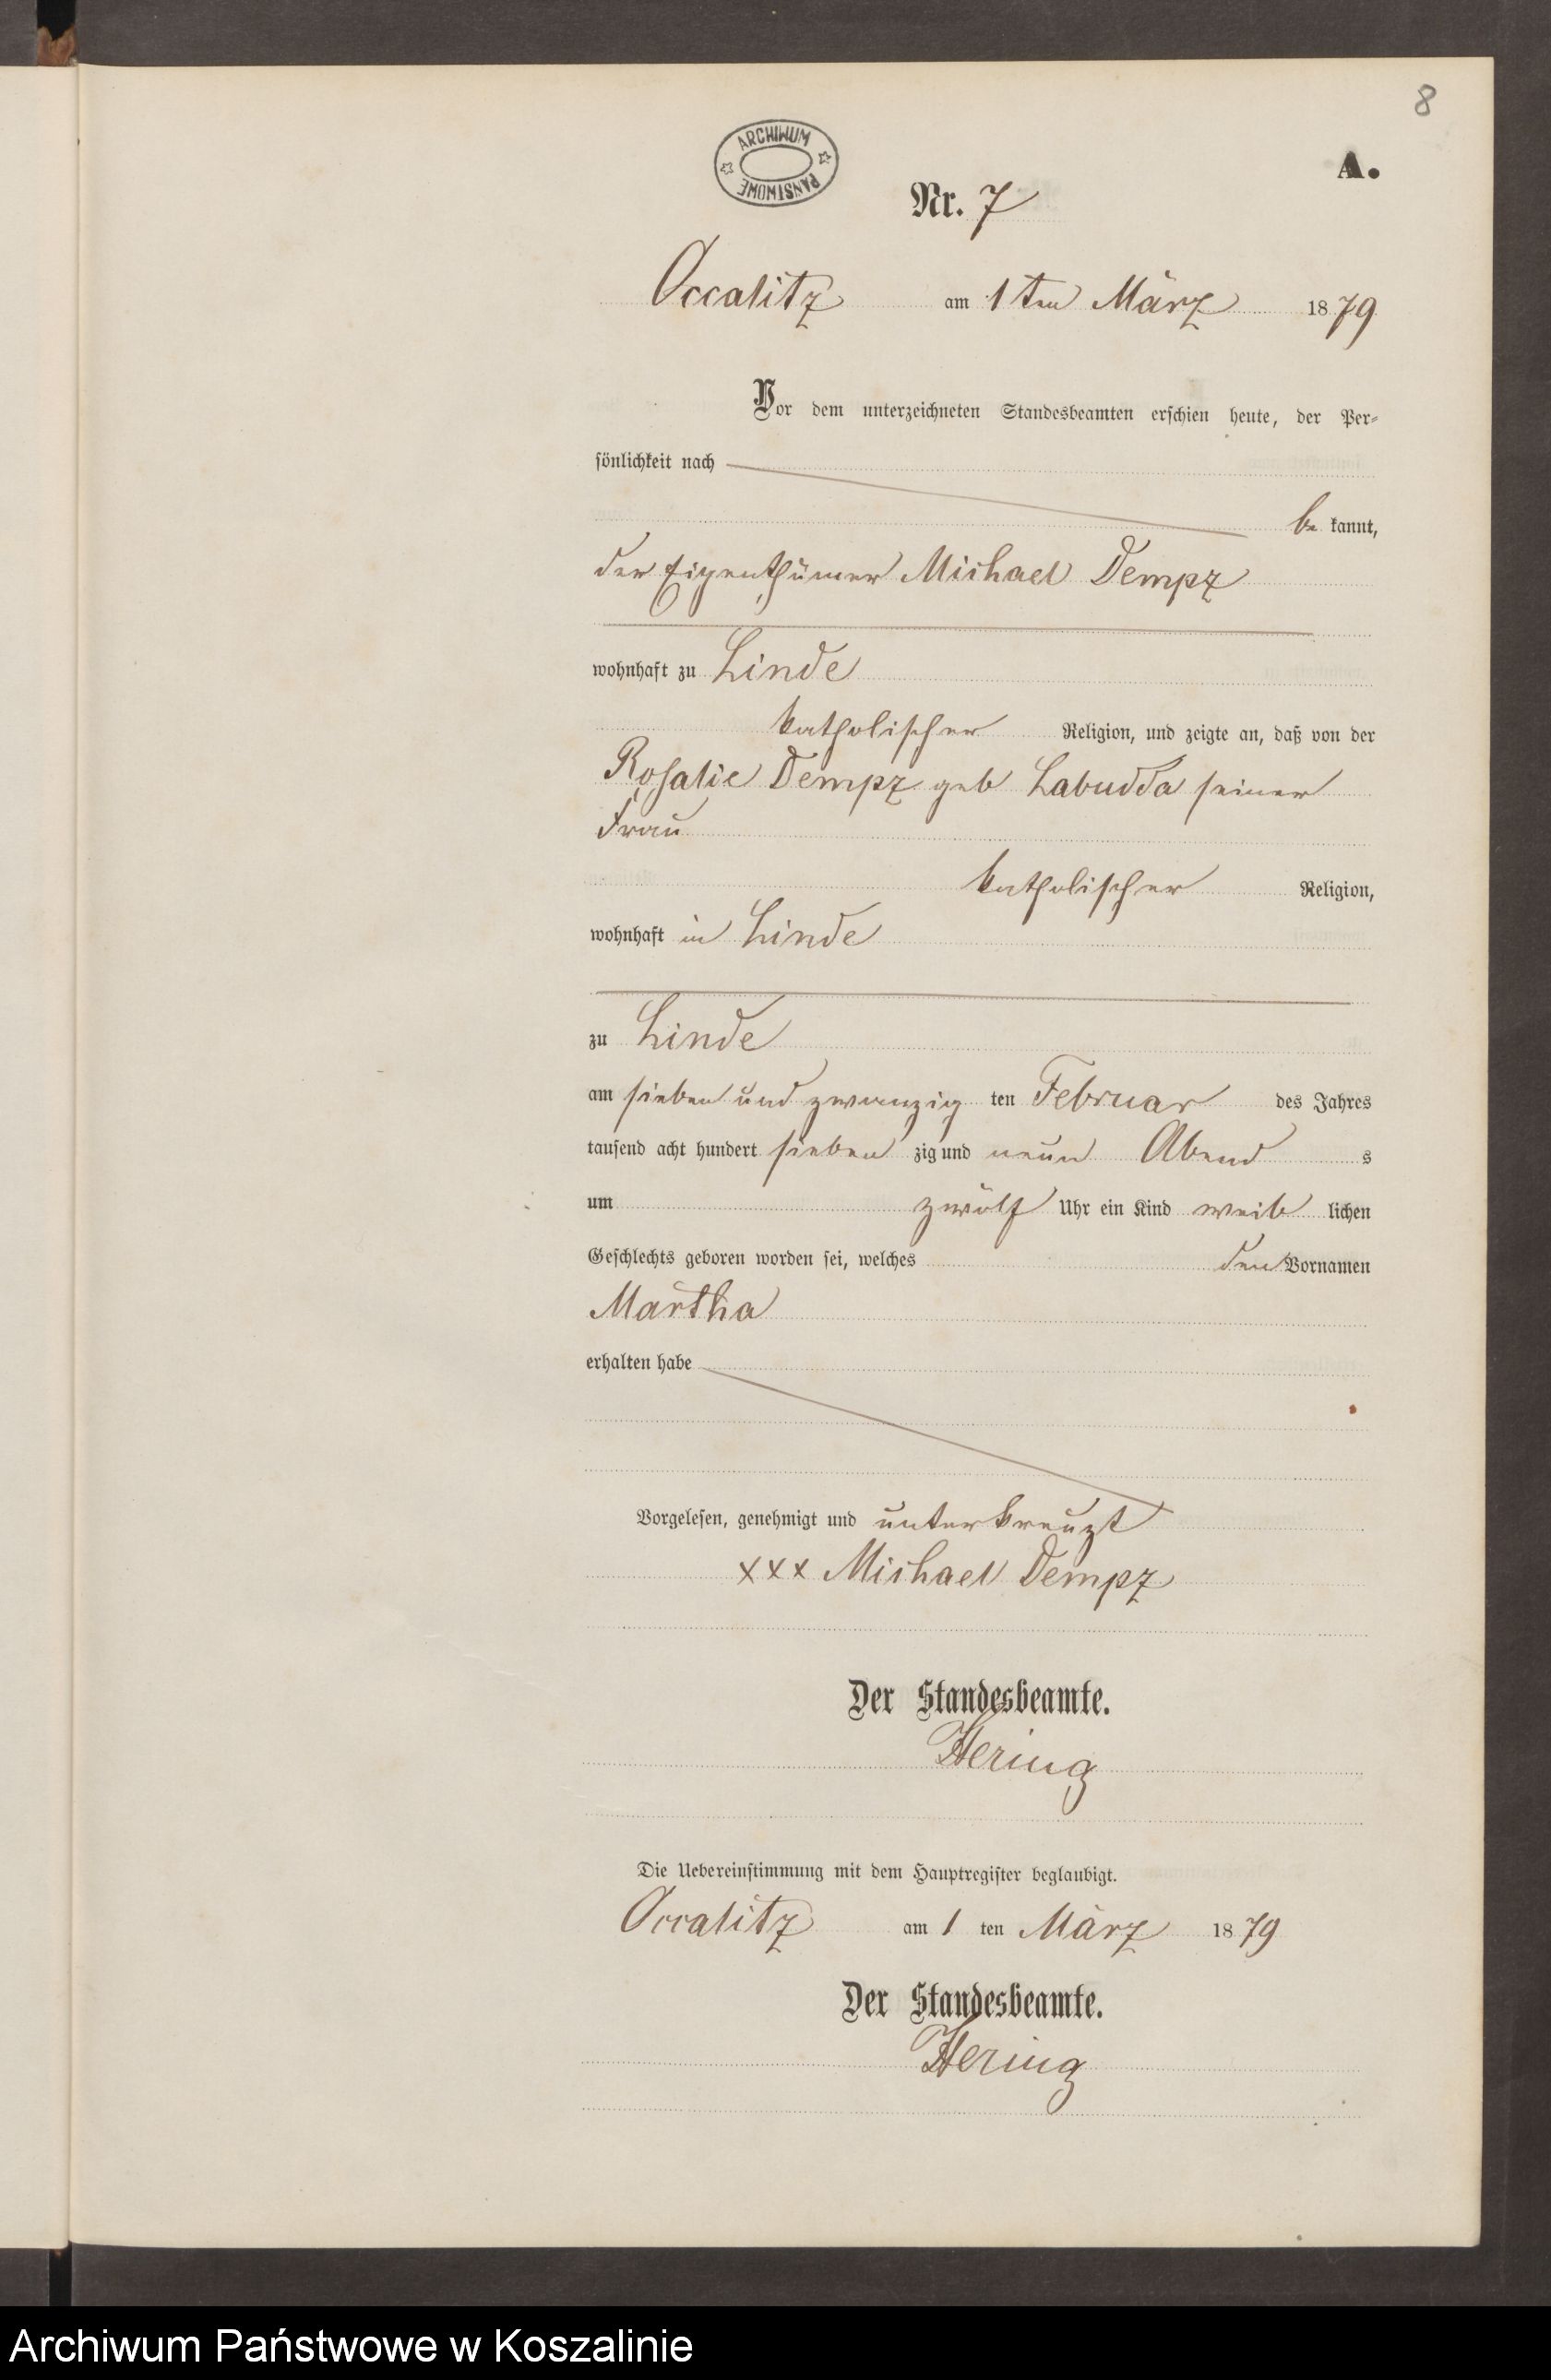 8
ARCHIWUM PAŃSTWOWE
A.
Nr. 7
Occalitz am 1ten März 1879
Vor dem unterzeichneten Standesbeamten erschien heute, der Per-
sönlichkeit nach
be kannt,
der Eigenthümer Michael Dempz
wohnhaft zu Linde
katholischer Religion, und zeigte an, daß von der
Rosalie Dempz geb Labudda seiner
Frau
katholischer Religion,
wohnhaft in Linde
zu Linde
am sieben und zwanzig ten Februar des Jahres
tausend acht hundert sieben zig und neun Abend s
um zwölf Uhr ein Kind weib lichen
Geschlechts geboren worden sei, welches den Vornamen
Martha
erhalten habe
Vorgelesen, genehmigt und unterkreuzt
xxx Michael Dempz
Der Standesbeamte.
Hering
Die Uebereinstimmung mit dem Hauptregister beglaubigt.
Occalitz am 1 ten März 1879
Der Standesbeamte.
Hering
Archiwum Państwowe w Koszalinie